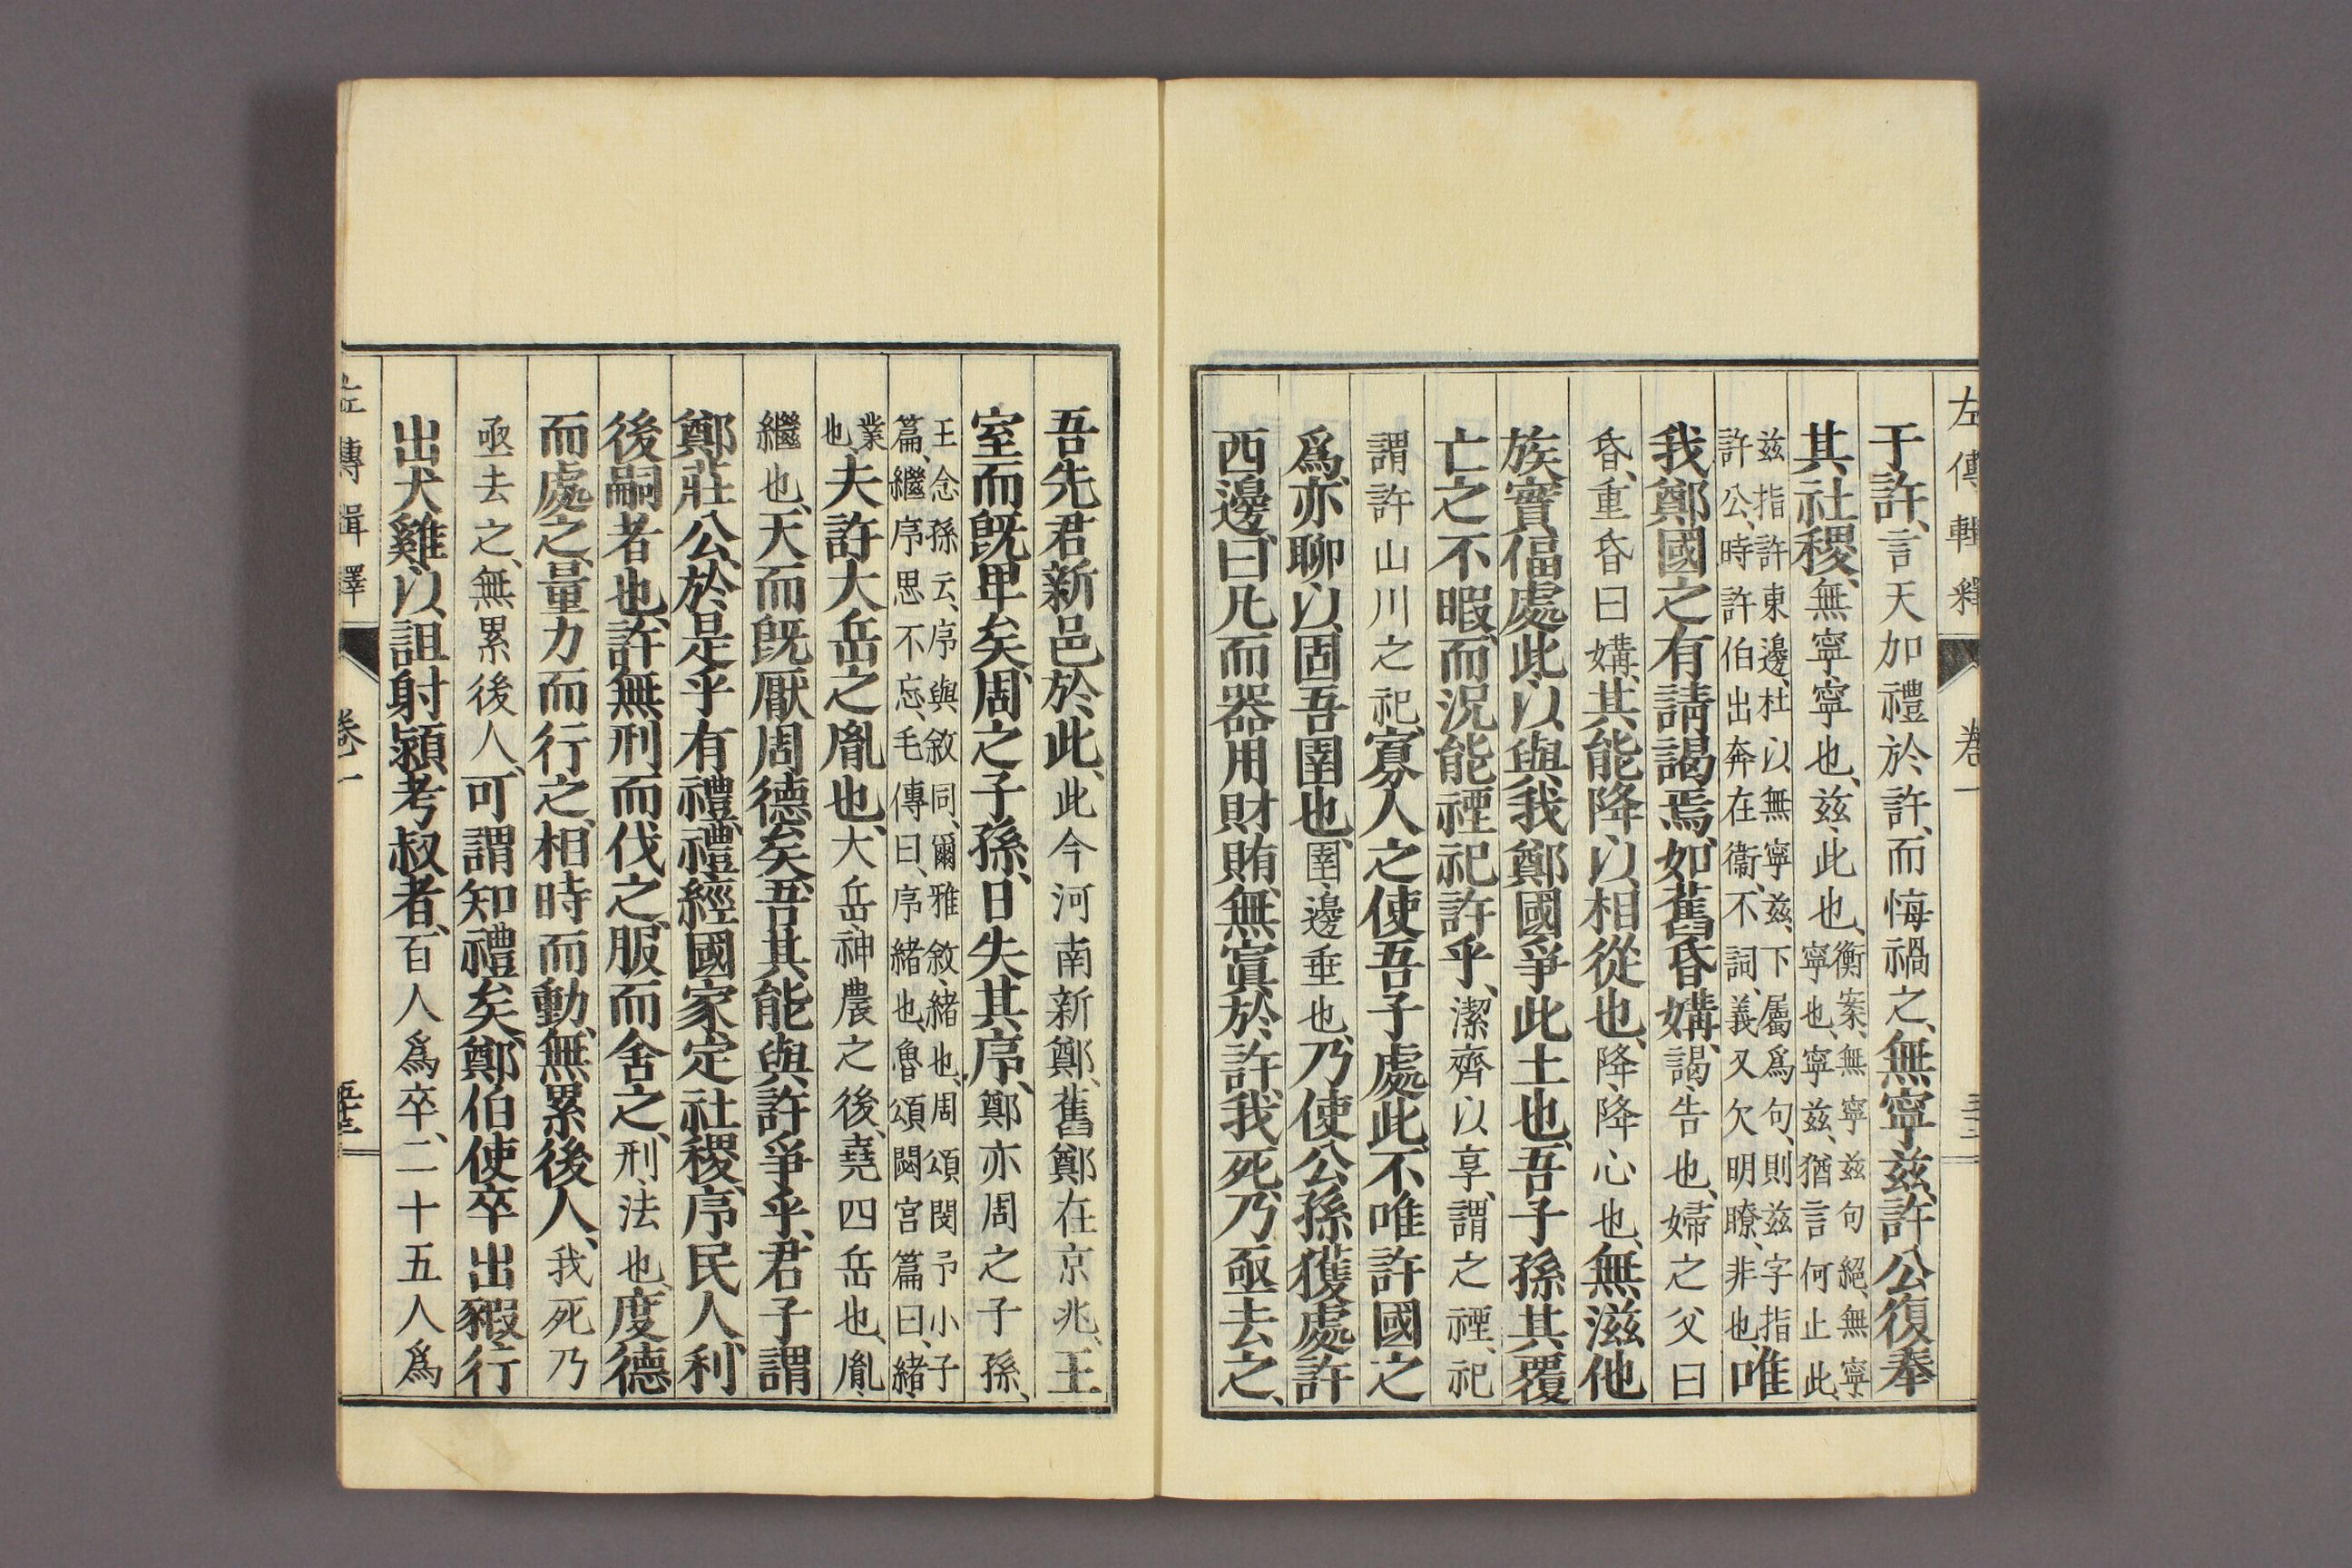 左傳輯釋 卷一
于許、言天加禮於許、而悔禍之、無寧茲、許公復奉
其社稷、無寧寧也、茲此也、衡案、無寧茲句絕、無寧
寧也、寧茲、猶言何止此、
茲指許東邊、杜以無寧茲、下屬爲句、則茲字指
許公、時許伯出奔在衞、不詞、義又欠明瞭、非也、唯
我鄭國之有請謁焉、如舊昏媾、謁告也、婦之父曰
昏、重昏曰媾、其能降以相從也、降降心也、無滋他
族、實偪處此、以與我鄭國爭此土也、吾子孫其覆
亡之不暇、而況能禋祀許乎、潔齊以享、謂之禋、祀
謂許山川之祀、寡人之使吾子處此、不唯許國之
爲、亦聊以固吾圉也、圉邊垂也、乃使公孫獲處許
西邊、曰、凡而器用財賄、無寘於許、我死、乃亟去之、
吾先君新邑於此、此今河南新鄭、舊鄭在京兆、王
室而旣卑矣、周之子孫、日失其序、鄭亦周之子孫、
王念孫云、序與敘同、爾雅敘、緒也、周頌閔予小子
篇、繼序思不忘、毛傳曰、序緒也、魯頌閟宮篇曰、緒
業
也、夫許大岳之胤也、大岳神農之後、堯四岳也、胤
繼也、天而旣厭周德矣、吾其能與許爭乎、君子謂
鄭莊公、於是乎有禮、禮經國家、定社稷、序民人、利
後嗣者也、許無刑而伐之、服而舍之、刑法也、度德
而處之、量力而行之、相時而動、無累後人、我死乃
亟去之、無累後人、可謂知禮矣、鄭伯使卒出豭、行
出犬雞、以詛射潁考叔者、百人爲卒、二十五人爲
左傳輯釋 卷一